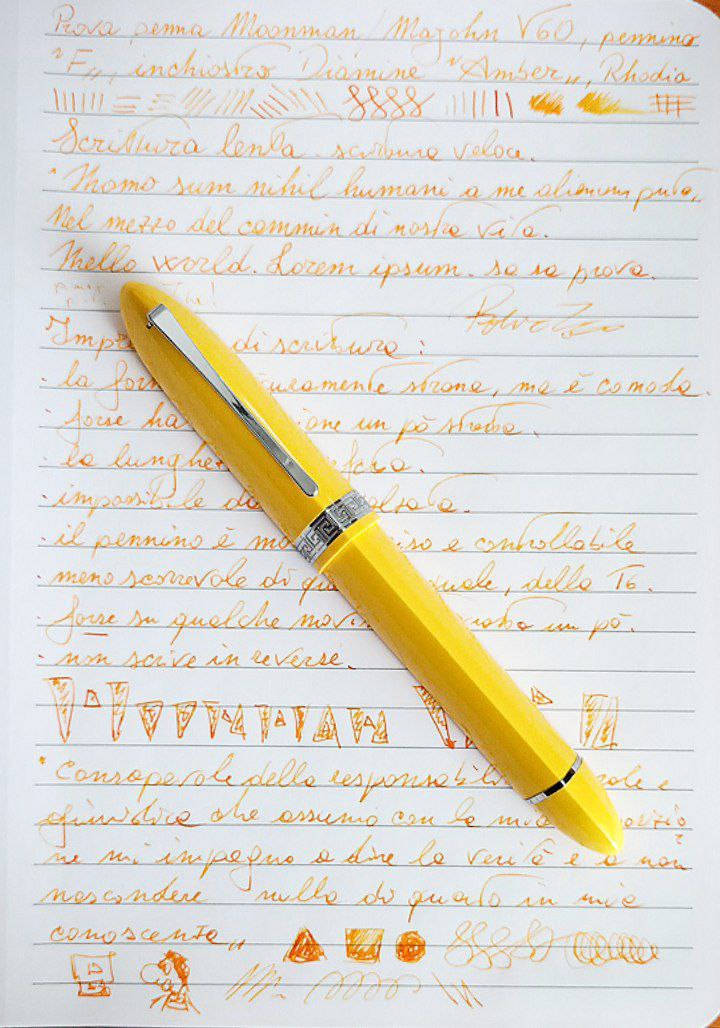 Prova penna Moonman / Majohn V60, pennino
"F", inchiostro Diamine "Amber", Rhodia
Scrittura lenta. scrittura veloce.
"Homo sum nihil humani a me alienum puto"
Nel mezzo del cammin di nostra vita.
Hello world. Lorem ipsum. sa sa prova.
di scrittura:
· la form curamente strana, ma è comoda.
· forse ha ione un pò strana.
· la lunghe
· impossibile
· il pennino è mo iso e controllabile
· meno scorrevole di qu uale, della T6.
· forse su qualche mov un pò.
· non scrive in reverse.
"Consapevole della responsabili ale e
giuridica che assumo con la mia
ne mi impegno a dire la verità e a non
nascondere nulla di quanto in mia
conoscenza"